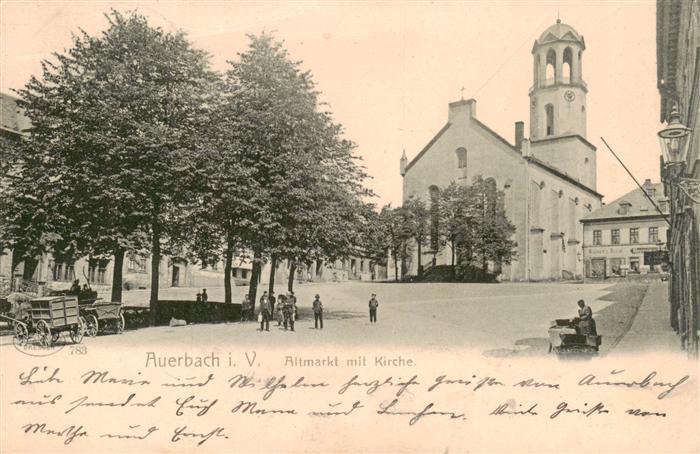 783 Auerbach i. V. Altmarkt mit Kirche.
Liebe Marie und Wilhelm herzliche Grüsse von Auerbach
aus sendet Euch Manne und Viele Grüsse von
Martha und Ernst.